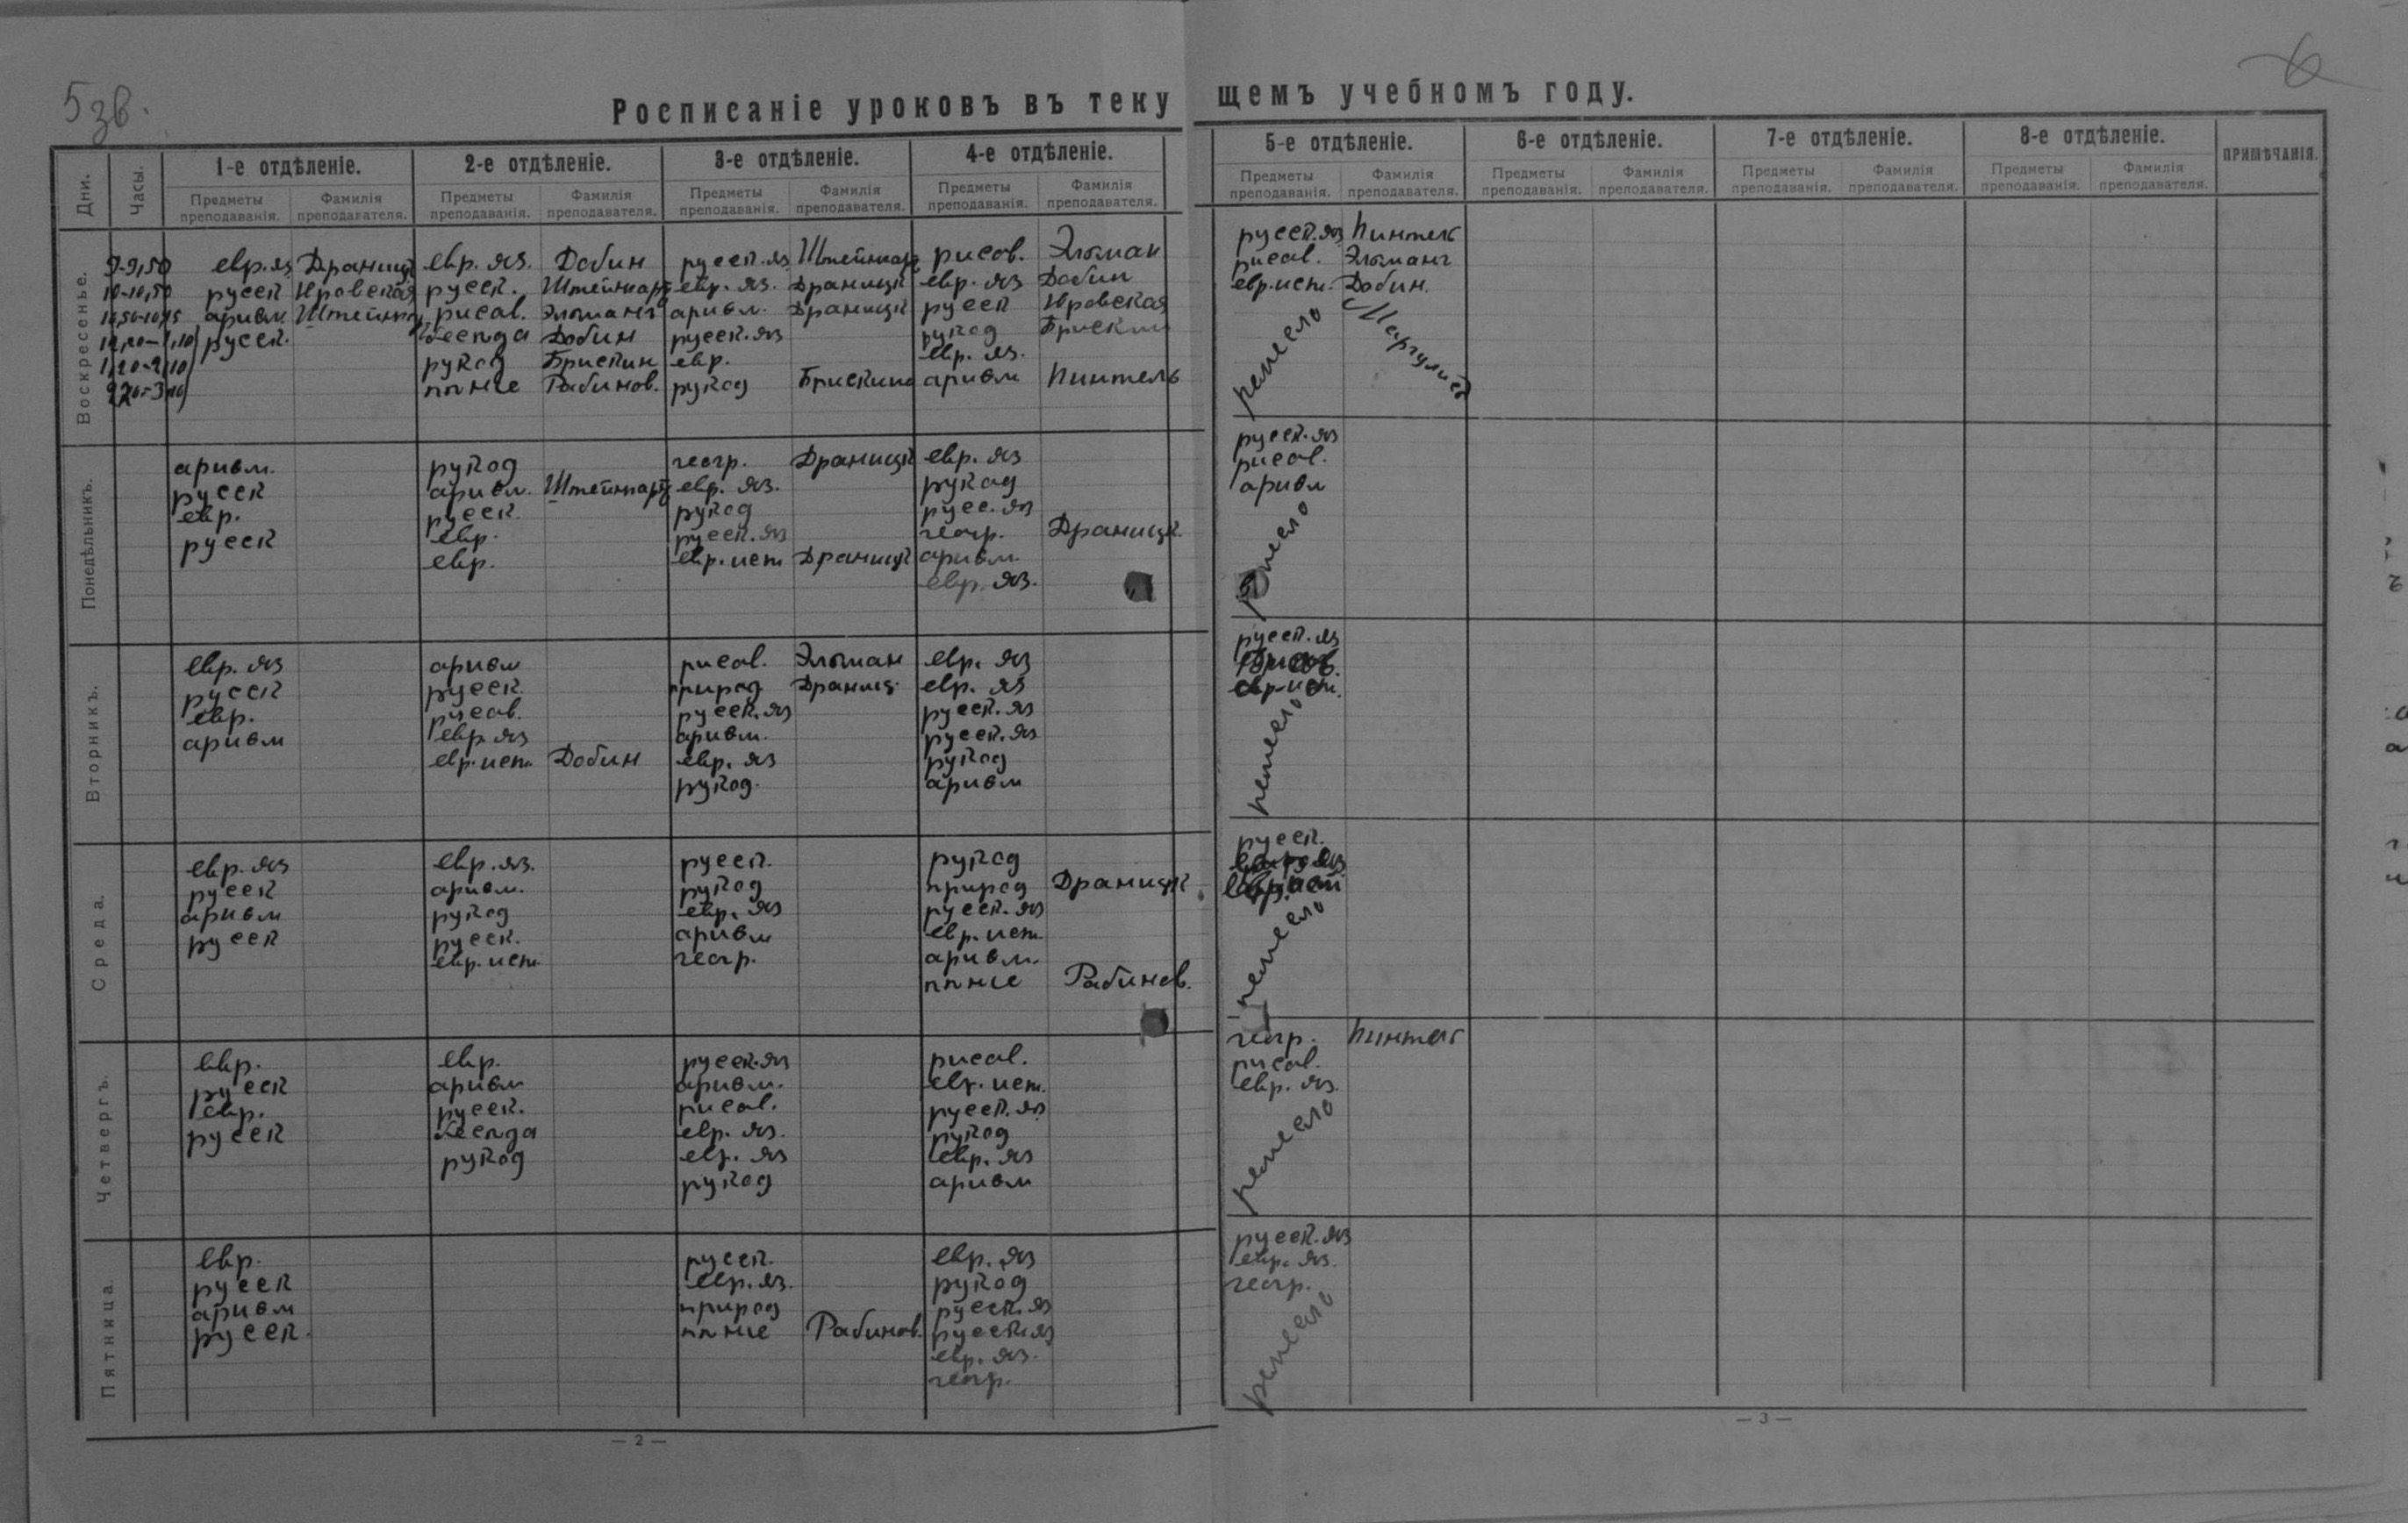 5 зв.
6
Росписаніе уроковъ въ теку щемъ учебномъ году.
Дни. Часы. 1-е отдѣленіе. 2-е отдѣленіе. 3-е отдѣленіе. 4-е отдѣленіе. 5-е отдѣленіе. 6-е отдѣленіе. 7-е отдѣленіе. 8-е отдѣленіе. ПРИМѢЧАНІЯ.
Предметы преподаванія. Фамилія преподавателя. Предметы преподаванія. Фамилія преподавателя. Предметы преподаванія. Фамилія преподавателя. Предметы преподаванія. Фамилія преподавателя. Предметы преподаванія. Фамилія преподавателя. Предметы преподаванія. Фамилія преподавателя. Предметы преподаванія. Фамилія преподавателя. Предметы преподаванія. Фамилія преподавателя.
Воскресенье.
9-9,50 евр. яз Драницк евр. яз. Добин русск. яз Штейнгарт рисов. Эльман русск. яз Пинтель
10-10,50 русск русск. Штейнгарт евр. яз. Драницк евр. яз Добин рисов. Эльманъ
ариѳм. Штейнгарт рисов. Эльманъ ариѳм. Драницк русск евр. ист. Добин.
русск. Добин русск. яз рукод Брискин ремесло Маргулис
1,20-2,10 рукод Брискин евр. евр. яз.
2,20-3,10 пѣніе Рабинов. рукод Брискина ариѳм Пинтель
Понедѣльникъ.
ариѳм. рукод геогр. Драницк евр. яз русск. яз
русск ариѳм. Штейнгарт евр. яз. рукод рисов.
евр. русск. рукод русс. яз ариѳм
русск евр. русск. яз геогр. Драницк. ремесло
евр. евр. ист Драницк ариѳм.
евр. яз.
Вторникъ.
евр. яз ариѳм рисов. Эльман евр. яз русск. яз
русск русск. природ Драниц. евр. яз
евр. рисов. русск. яз русск. яз евр. ист.
ариѳм евр яз ариѳм. русск. яз ремесло
евр. ист. Добин евр. яз рукод
рукод. ариѳм
Среда.
евр. яз евр. яз. русск. рукод русск.
русск ариѳм. рукод природ Драницк
ариѳм рукод евр. яз русск. яз евр. ист
русск русск. ариѳм евр. ист. ремесло
евр. ист. геогр. ариѳм.
пѣніе Рабинов.
Четвергъ.
евр. евр. русск. яз рисов. геогр. Пинтель
русск ариѳм ариѳм. евр. ист. рисов.
евр. русск. рисов. русск. яз евр. яз.
русск евр. яз. рукод ремесло
рукод евр. яз евр. яз
рукод ариѳм
Пятница.
евр. русск. евр. яз русск. яз
русск евр. яз. рукод евр. яз.
ариѳм природ русск. яз геогр.
русск. пѣніе Рабинов. русск яз ремесло
евр. яз.
геогр.
— 2 —
— 3 —